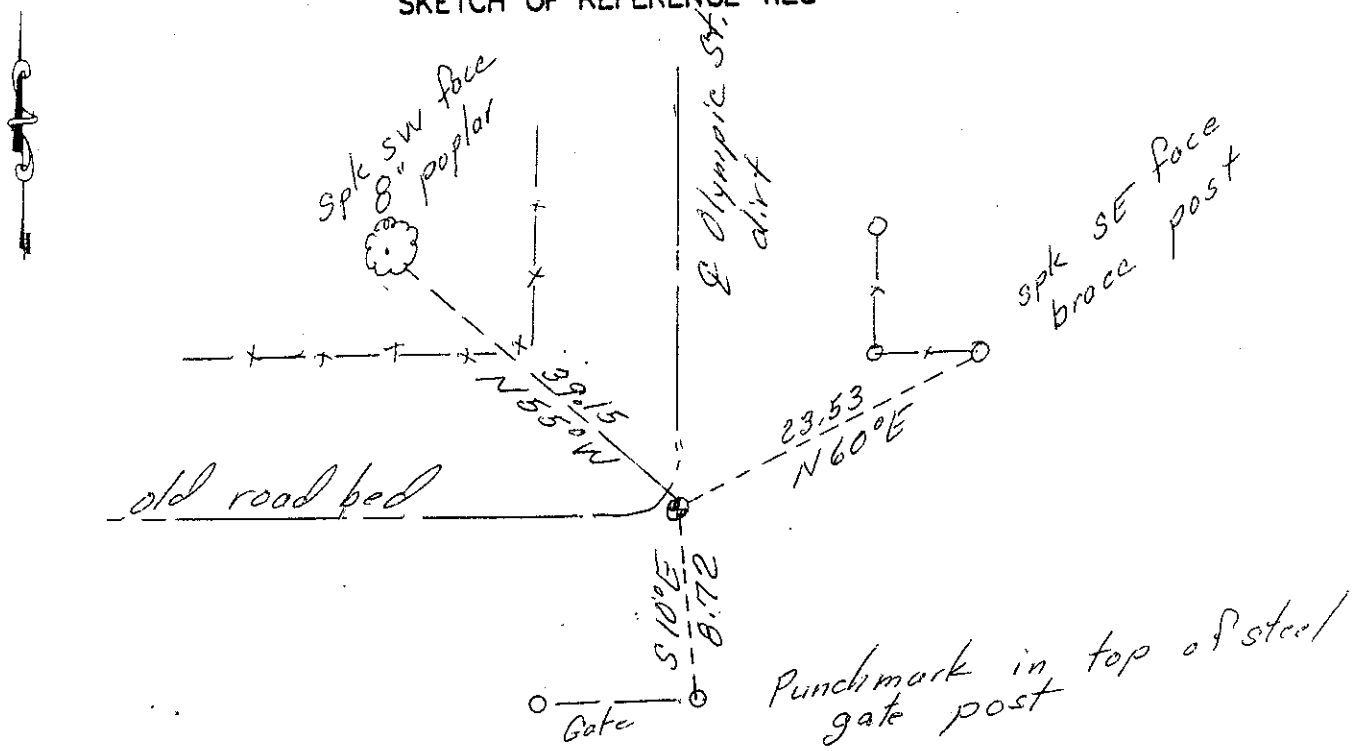 SKETCH OF REFERENCE TIES
spk SW face
8" poplar
℄ Olympic St.
dirt
spk SE face
brace post
39.15
N 55°W
23.53
N 60°E
old road bed
S 10°E
8.72
Gate
Punchmark in top of steel
gate post